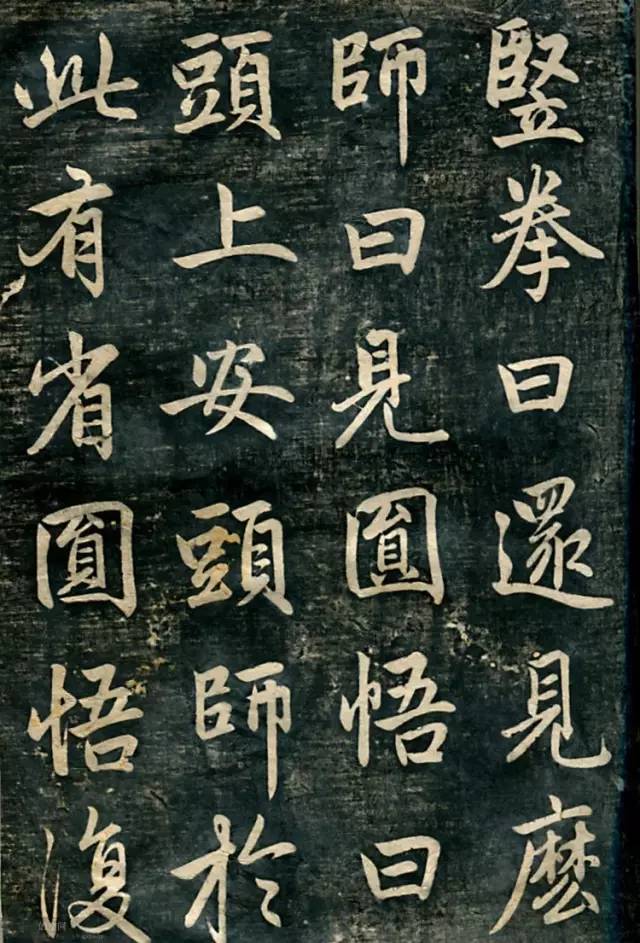 竪拳曰還見麽
師曰見圓悟曰
頭上安頭師於
此有省圓悟復